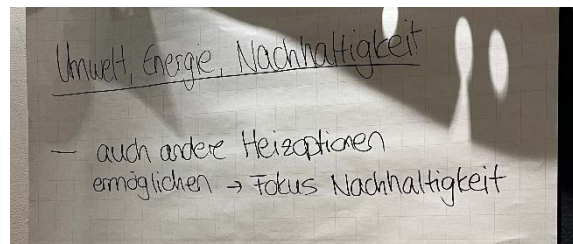 Umwelt, Energie, Nachhaltigkeit
— auch andere Heizoptionen
ermöglichen → Fokus Nachhaltigkeit